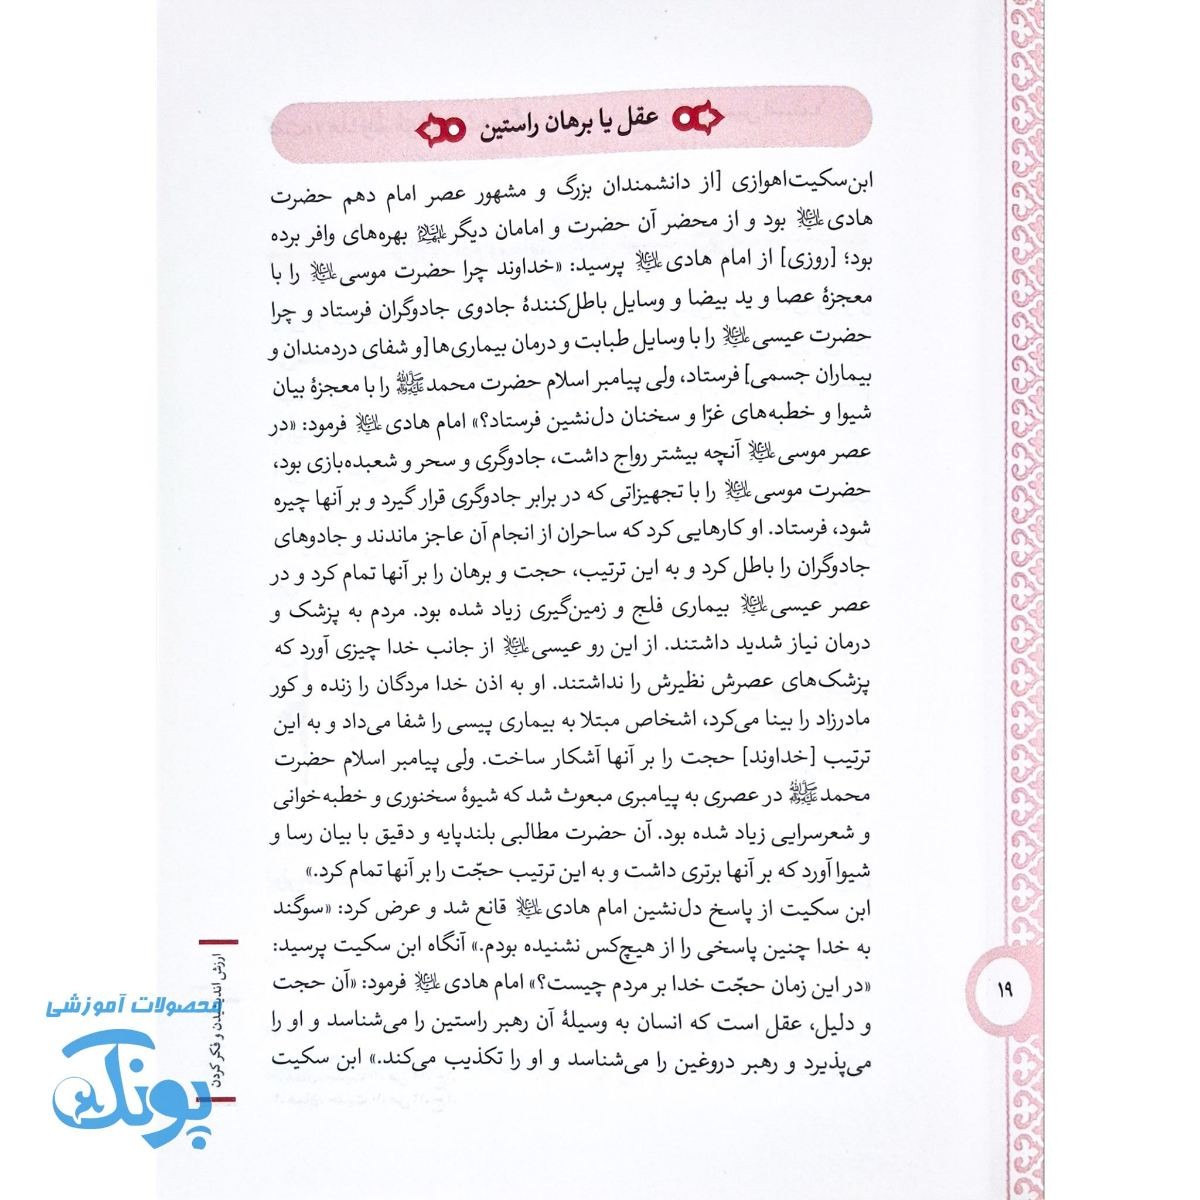 عقل یا برهان راستین
ابن‌سکیت‌اهوازی [از دانشمندان بزرگ و مشهور عصر امام دهم حضرت
هادی علیه‌السلام بود و از محضر آن حضرت و امامان دیگر علیهم‌السلام بهره‌های وافر برده
بود؛ [روزی] از امام هادی علیه‌السلام پرسید: «خداوند چرا حضرت موسی علیه‌السلام را با
معجزهٔ عصا و ید بیضا و وسایل باطل‌کنندهٔ جادوی جادوگران فرستاد و چرا
حضرت عیسی علیه‌السلام را با وسایل طبابت و درمان بیماری‌ها [و شفای دردمندان و
بیماران جسمی] فرستاد، ولی پیامبر اسلام حضرت محمد ﷺ را با معجزهٔ بیان
شیوا و خطبه‌های غرّا و سخنان دل‌نشین فرستاد؟» امام هادی علیه‌السلام فرمود: «در
عصر موسی علیه‌السلام آنچه بیشتر رواج داشت، جادوگری و سحر و شعبده‌بازی بود،
حضرت موسی علیه‌السلام را با تجهیزاتی که در برابر جادوگری قرار گیرد و بر آنها چیره
شود، فرستاد. او کارهایی کرد که ساحران از انجام آن عاجز ماندند و جادوهای
جادوگران را باطل کرد و به این ترتیب، حجت و برهان را بر آنها تمام کرد و در
عصر عیسی علیه‌السلام بیماری فلج و زمین‌گیری زیاد شده بود. مردم به پزشک و
درمان نیاز شدید داشتند. از این رو عیسی علیه‌السلام از جانب خدا چیزی آورد که
پزشک‌های عصرش نظیرش را نداشتند. او به اذن خدا مردگان را زنده و کور
مادرزاد را بینا می‌کرد، اشخاص مبتلا به بیماری پیسی را شفا می‌داد و به این
ترتیب [خداوند] حجت را بر آنها آشکار ساخت. ولی پیامبر اسلام حضرت
محمد ﷺ در عصری به پیامبری مبعوث شد که شیوهٔ سخنوری و خطبه‌خوانی
و شعرسرایی زیاد شده بود. آن حضرت مطالبی بلندپایه و دقیق با بیان رسا و
شیوا آورد که بر آنها برتری داشت و به این ترتیب حجّت را بر آنها تمام کرد.»
ابن سکیت از پاسخ دل‌نشین امام هادی علیه‌السلام قانع شد و عرض کرد: «سوگند
به خدا چنین پاسخی را از هیچ‌کس نشنیده بودم.» آنگاه ابن سکیت پرسید:
«در این زمان حجّت خدا بر مردم چیست؟» امام هادی علیه‌السلام فرمود: «آن حجت
و دلیل، عقل است که انسان به وسیلهٔ آن رهبر راستین را می‌شناسد و او را
می‌پذیرد و رهبر دروغین را می‌شناسد و او را تکذیب می‌کند.» ابن سکیت
۱۹
ارزش اندیشیدن و فکر کردن
محصولات آموزشی
پونک